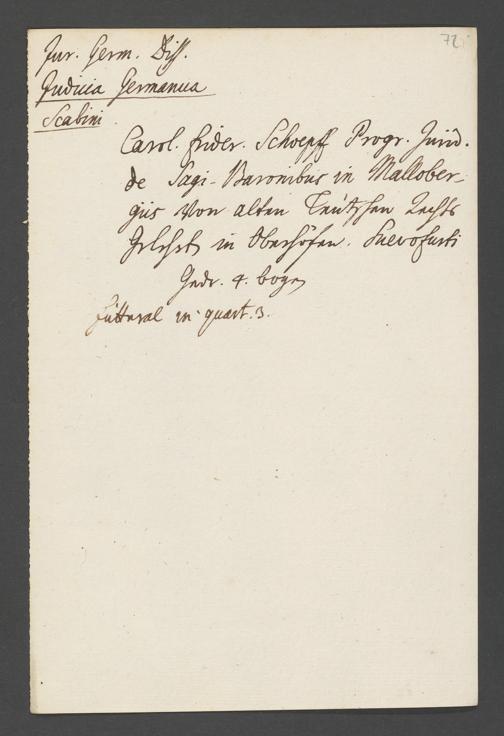 72.
Jur. Germ. Diss.
Judicia Germanica
Scabini.
Carol. Frider. Schoepff Progr. Jurid.
de Sagi-Baronibus in Mallober-
giis Von alten Teutschen Rechts
Gelehrten in Oberhöfen. Suevofurti
Gedr. 4. bogen
Futteral in quart. 3.